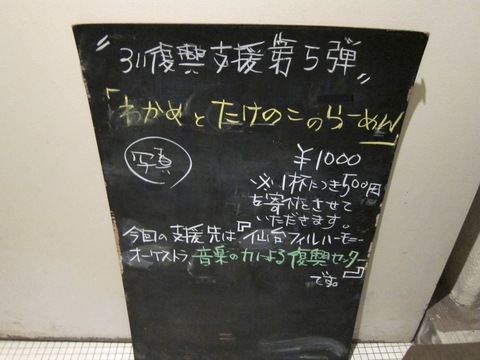 "311復興支援第5弾"
「わかめとたけのこのらーめん
写真
¥1000
※1杯につき500円
を寄付させて
いただきます。
今回の支援先は『仙台フィルハーモニー
オーケストラ 音楽の力による復興センター』
です。